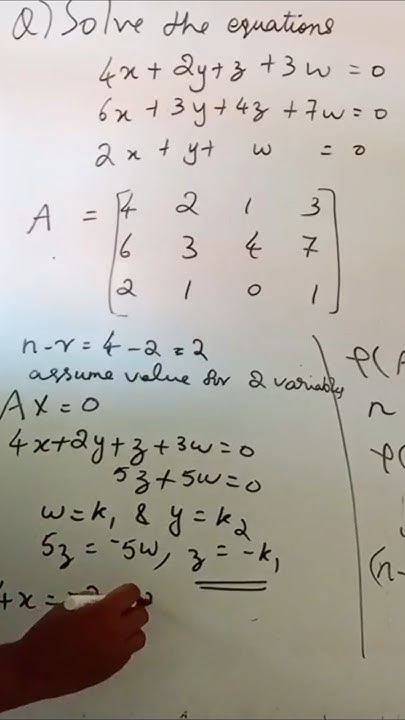 Q) Solve the equations
4x + 2y + z + 3w = 0
6x + 3y + 4z + 7w = 0
2x + y + w = 0
A = [4 2 1 3
6 3 4 7
2 1 0 1]
n-r = 4-2 = 2
assume value for 2 variables
AX = 0
4x+2y+z+3w=0
5z+5w=0
w=k₁ & y=k₂
5z = -5w, z = -k₁
4x =
ρ(A
n
ρ(
(n-